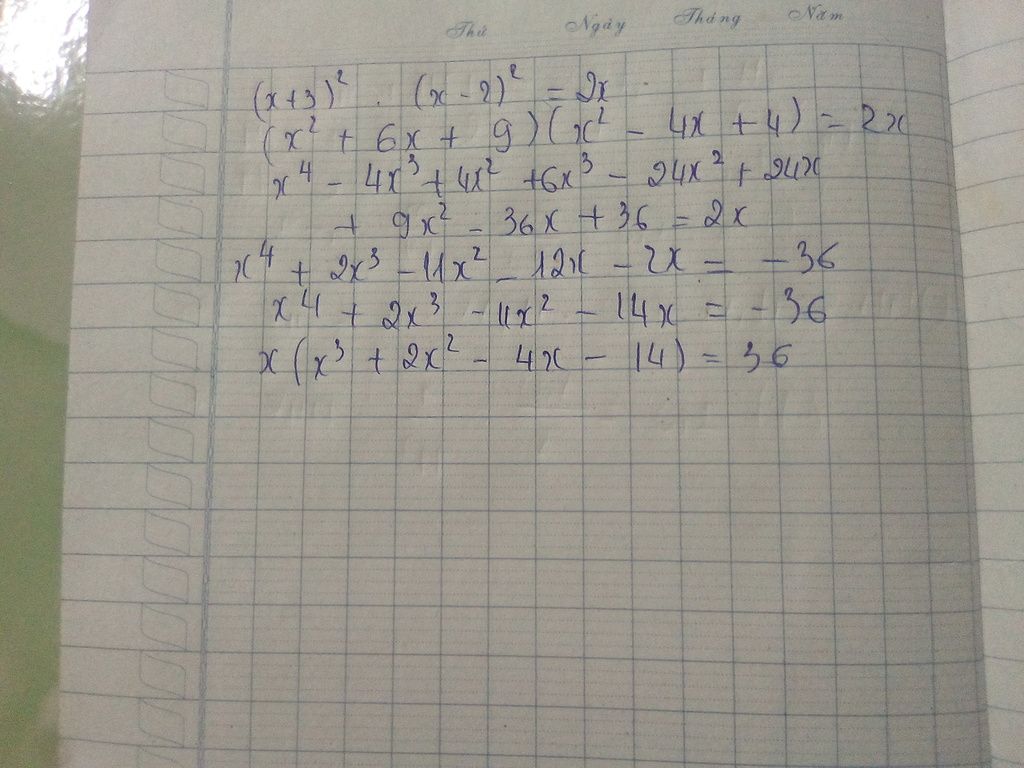 Thứ Ngày Tháng Năm
(x+3)² . (x - 2)² = 2x
(x² + 6x + 9)(x² - 4x + 4) = 2x
x⁴ - 4x³ + 4x² + 6x³ - 24x² + 24x
+ 9x² - 36x + 36 = 2x
x⁴ + 2x³ - 11x² - 12x - 2x = - 36
x⁴ + 2x³ - 11x² - 14x = - 36
x(x³ + 2x² - 4x - 14) = 36